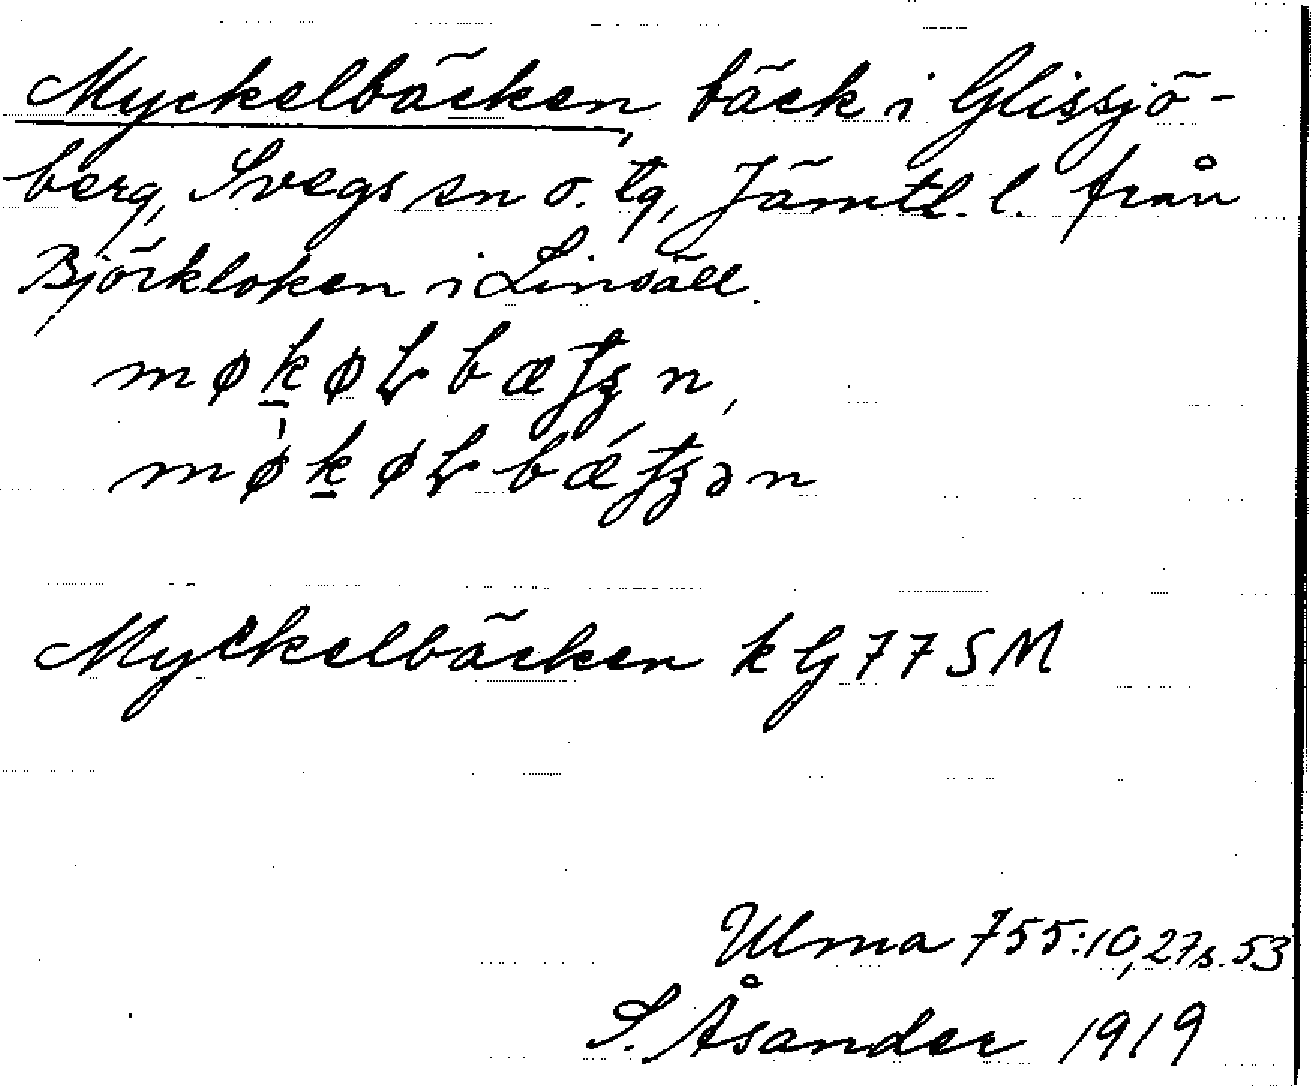 Myckelbäcken, bäck i Glissjö-
berg, Svegs sn o. tg, Jämtl. l. från
Björkloken i Linsäll.
møkøɫbæʄʒn,
møkøɫbǽʄʒən
Myckelbäcken k G 77 S M
Ulma 755:10,27 s. 53
S. Åsander 1919